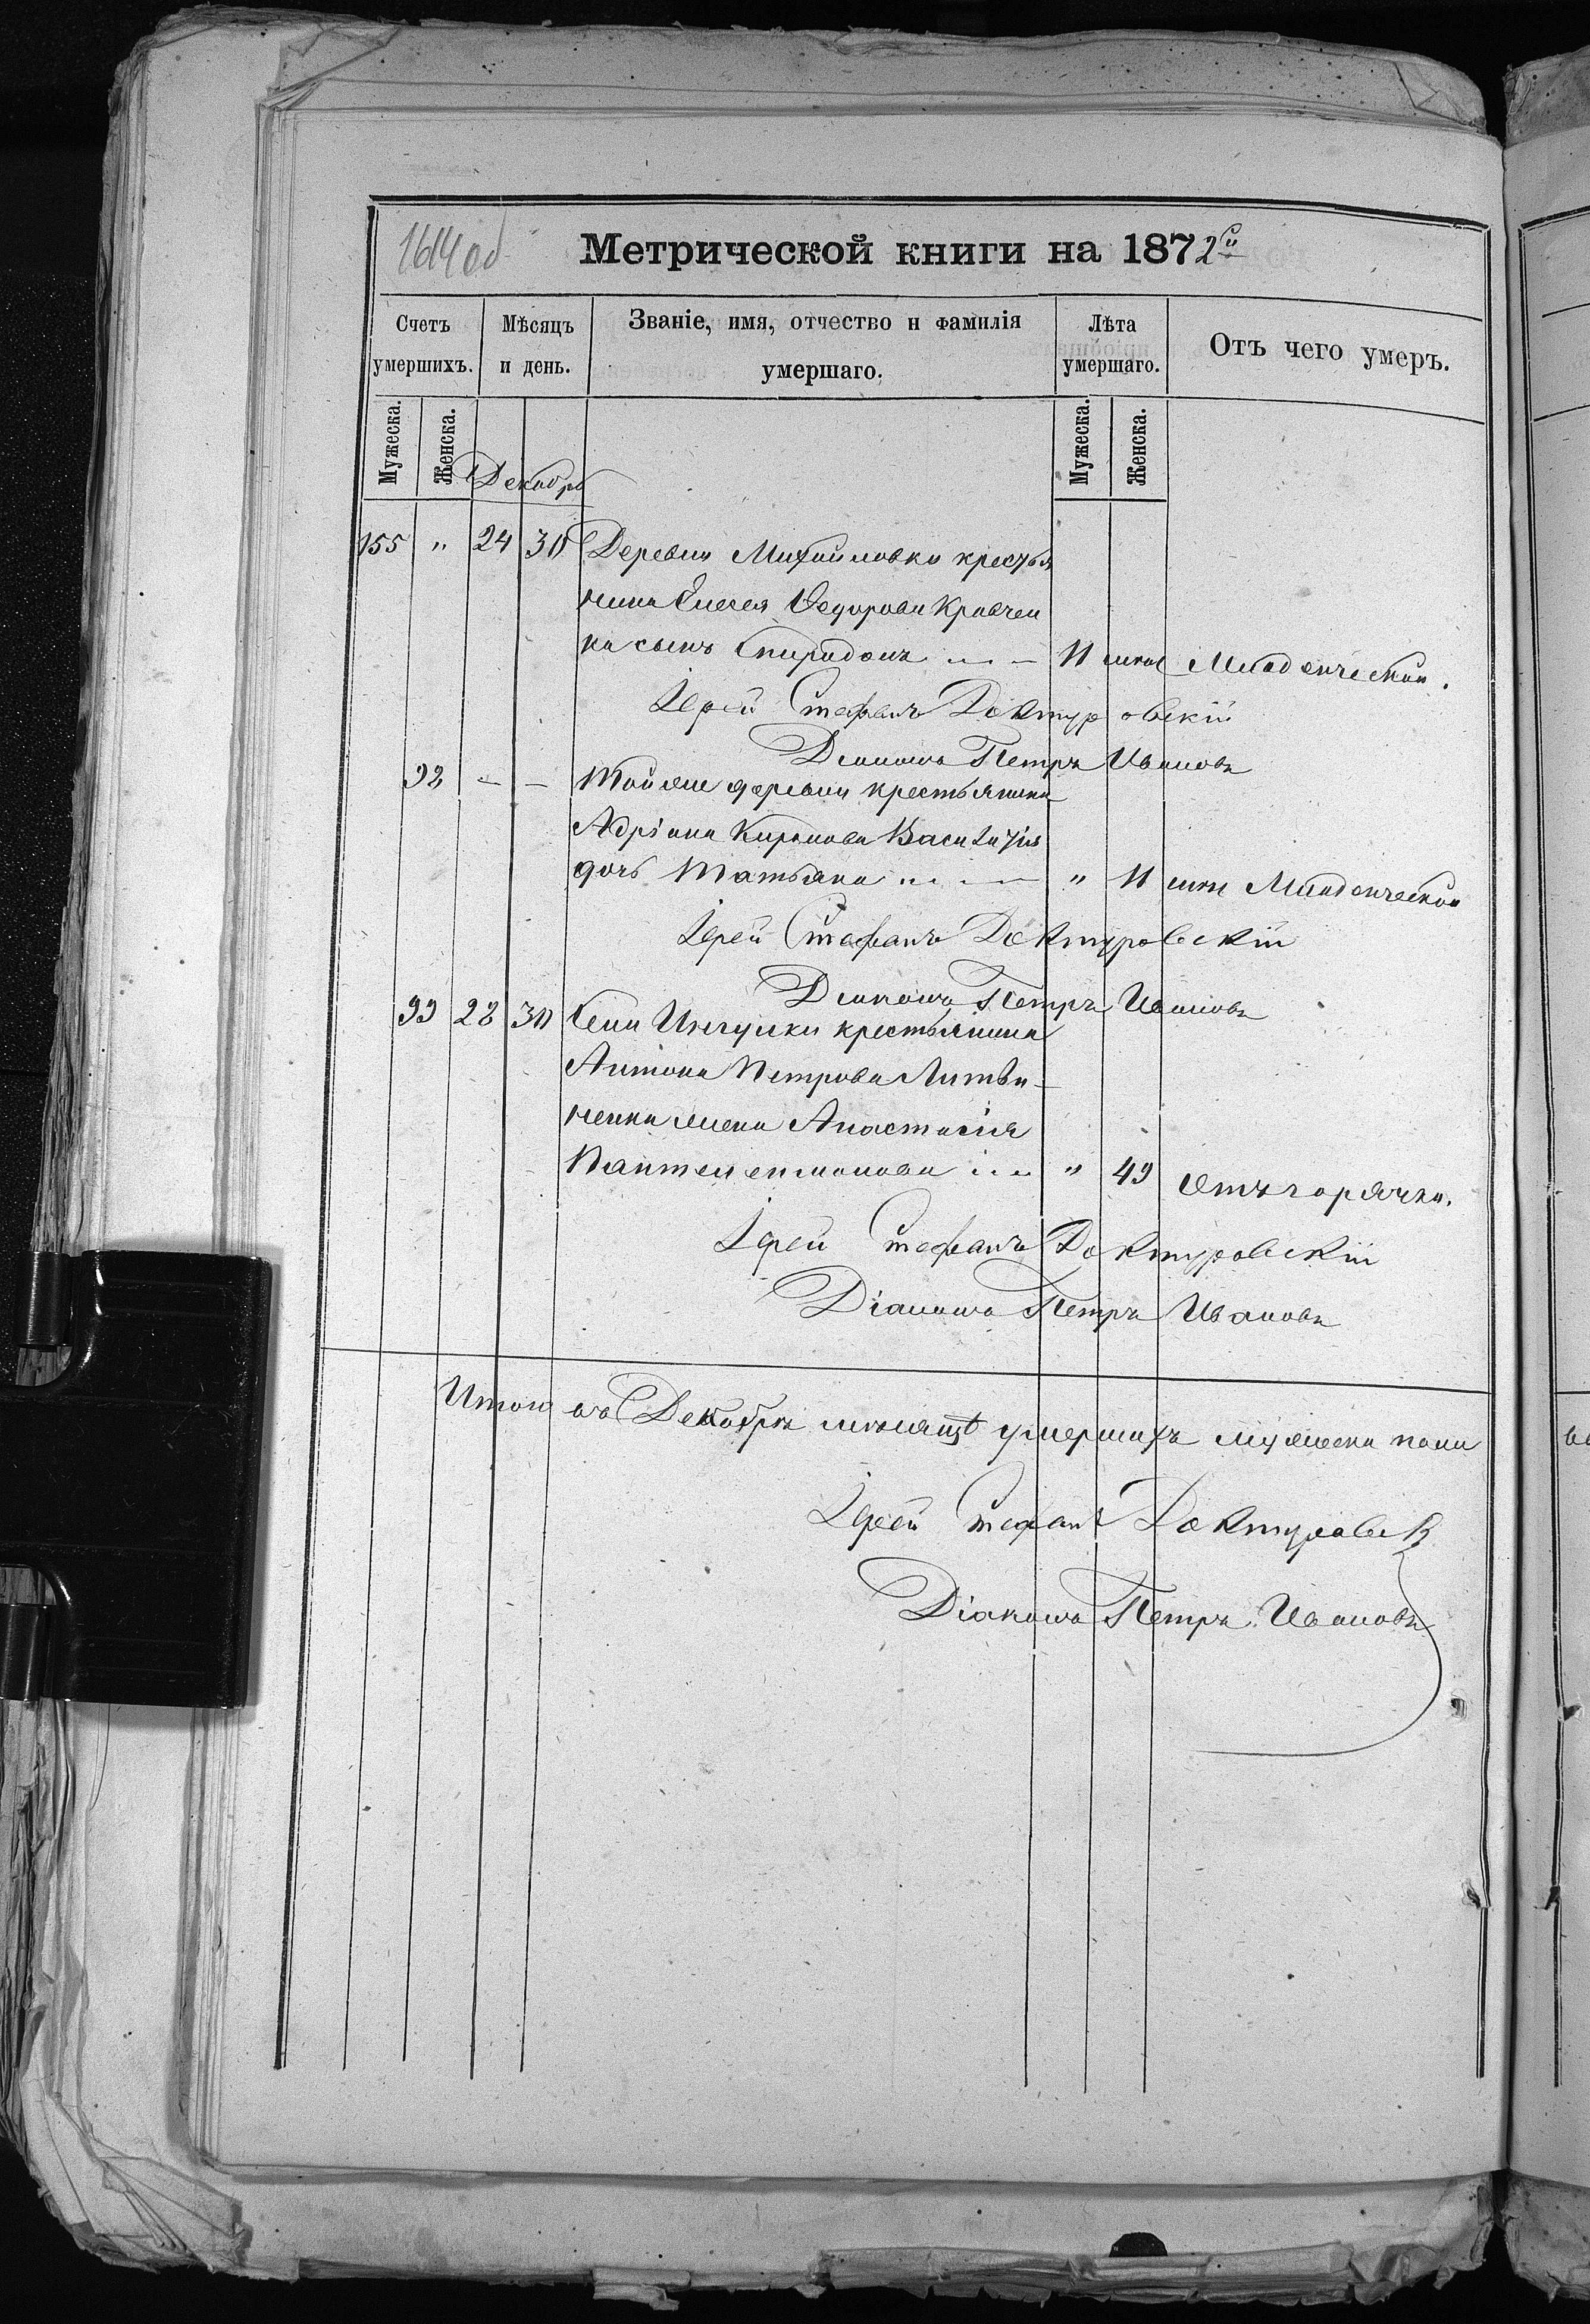 1614 об
Метрической книги на 1872й
Счетъ умершихъ.
Мѣсяцъ и день.
Званіе, имя, отчество и фамилія умершаго.
Лѣта умершаго.
Отъ чего умеръ.
Мужеска.
Женска.
Мужеска.
Женска.
Декабрь
155 " 24 30 Деревни Михайловки крестья
нина Елисея Ѳедорова Кравчен
ка сынъ Спиридонъ 11 мѣс Младенческой.
Іерей Стефанъ Доктуровскій
Діаконъ Петръ Ивановъ
92 - - Тойже деревни крестьянина
Адріана Кирѣнова
дочь Татьяна " 11 мѣс Младенческой
Іерей Стефанъ Доктуровскій
Діаконъ Петръ Ивановъ
93 28 30 Села Ингулки крестьянина
Антона Петрова Литви-
ненка жена Анастасія
Пантелеимонова " 49 Отъ горячки.
Іерей Стефанъ Доктуровскій
Діаконъ Петръ Ивановъ
Итого въ Декабрѣ мѣсяцѣ умершихъ мужеска пола
Іерей Стефанъ Доктуровск
Діаконъ Петръ Ивановъ